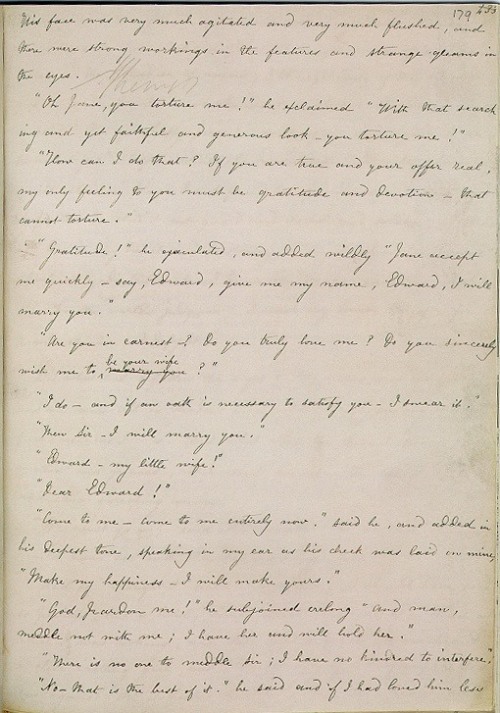 179 233
His face was very much agitated and very much flushed, and
there were strong workings in the features and strange gleams in
the eyes.
"Oh Jane, you torture me!" he exclaimed "With that search
ing and yet faithful and generous look - you torture me!"
"How can I do that? If you are true and your offer real,
my only feeling to you must be gratitude and devotion - that
cannot torture."
"Gratitude!" he ejaculated, and added wildly "Jane accept
me quickly - say, Edward, give me my name, Edward, I will
marry you."
"Are you in earnest -? Do you truly love me? Do you sincerely
be your wife
wish me to marry you?"
"I do - and if an oath is necessary to satisfy you - I swear it."
"Then Sir - I will marry you."
"Edward - my little wife!"
"Dear Edward!"
"Come to me - come to me entirely now." said he, and added in
his deepest tone, speaking in my ear as his cheek was laid on mine,
"Make my happiness - I will make yours."
"God, pardon me!" he subjoined erelong "and man,
meddle not with me; I have her and will hold her."
"There is no one to meddle Sir; I have no kindred to interfere."
"No - that is the best of it." he said and if I had loved him less